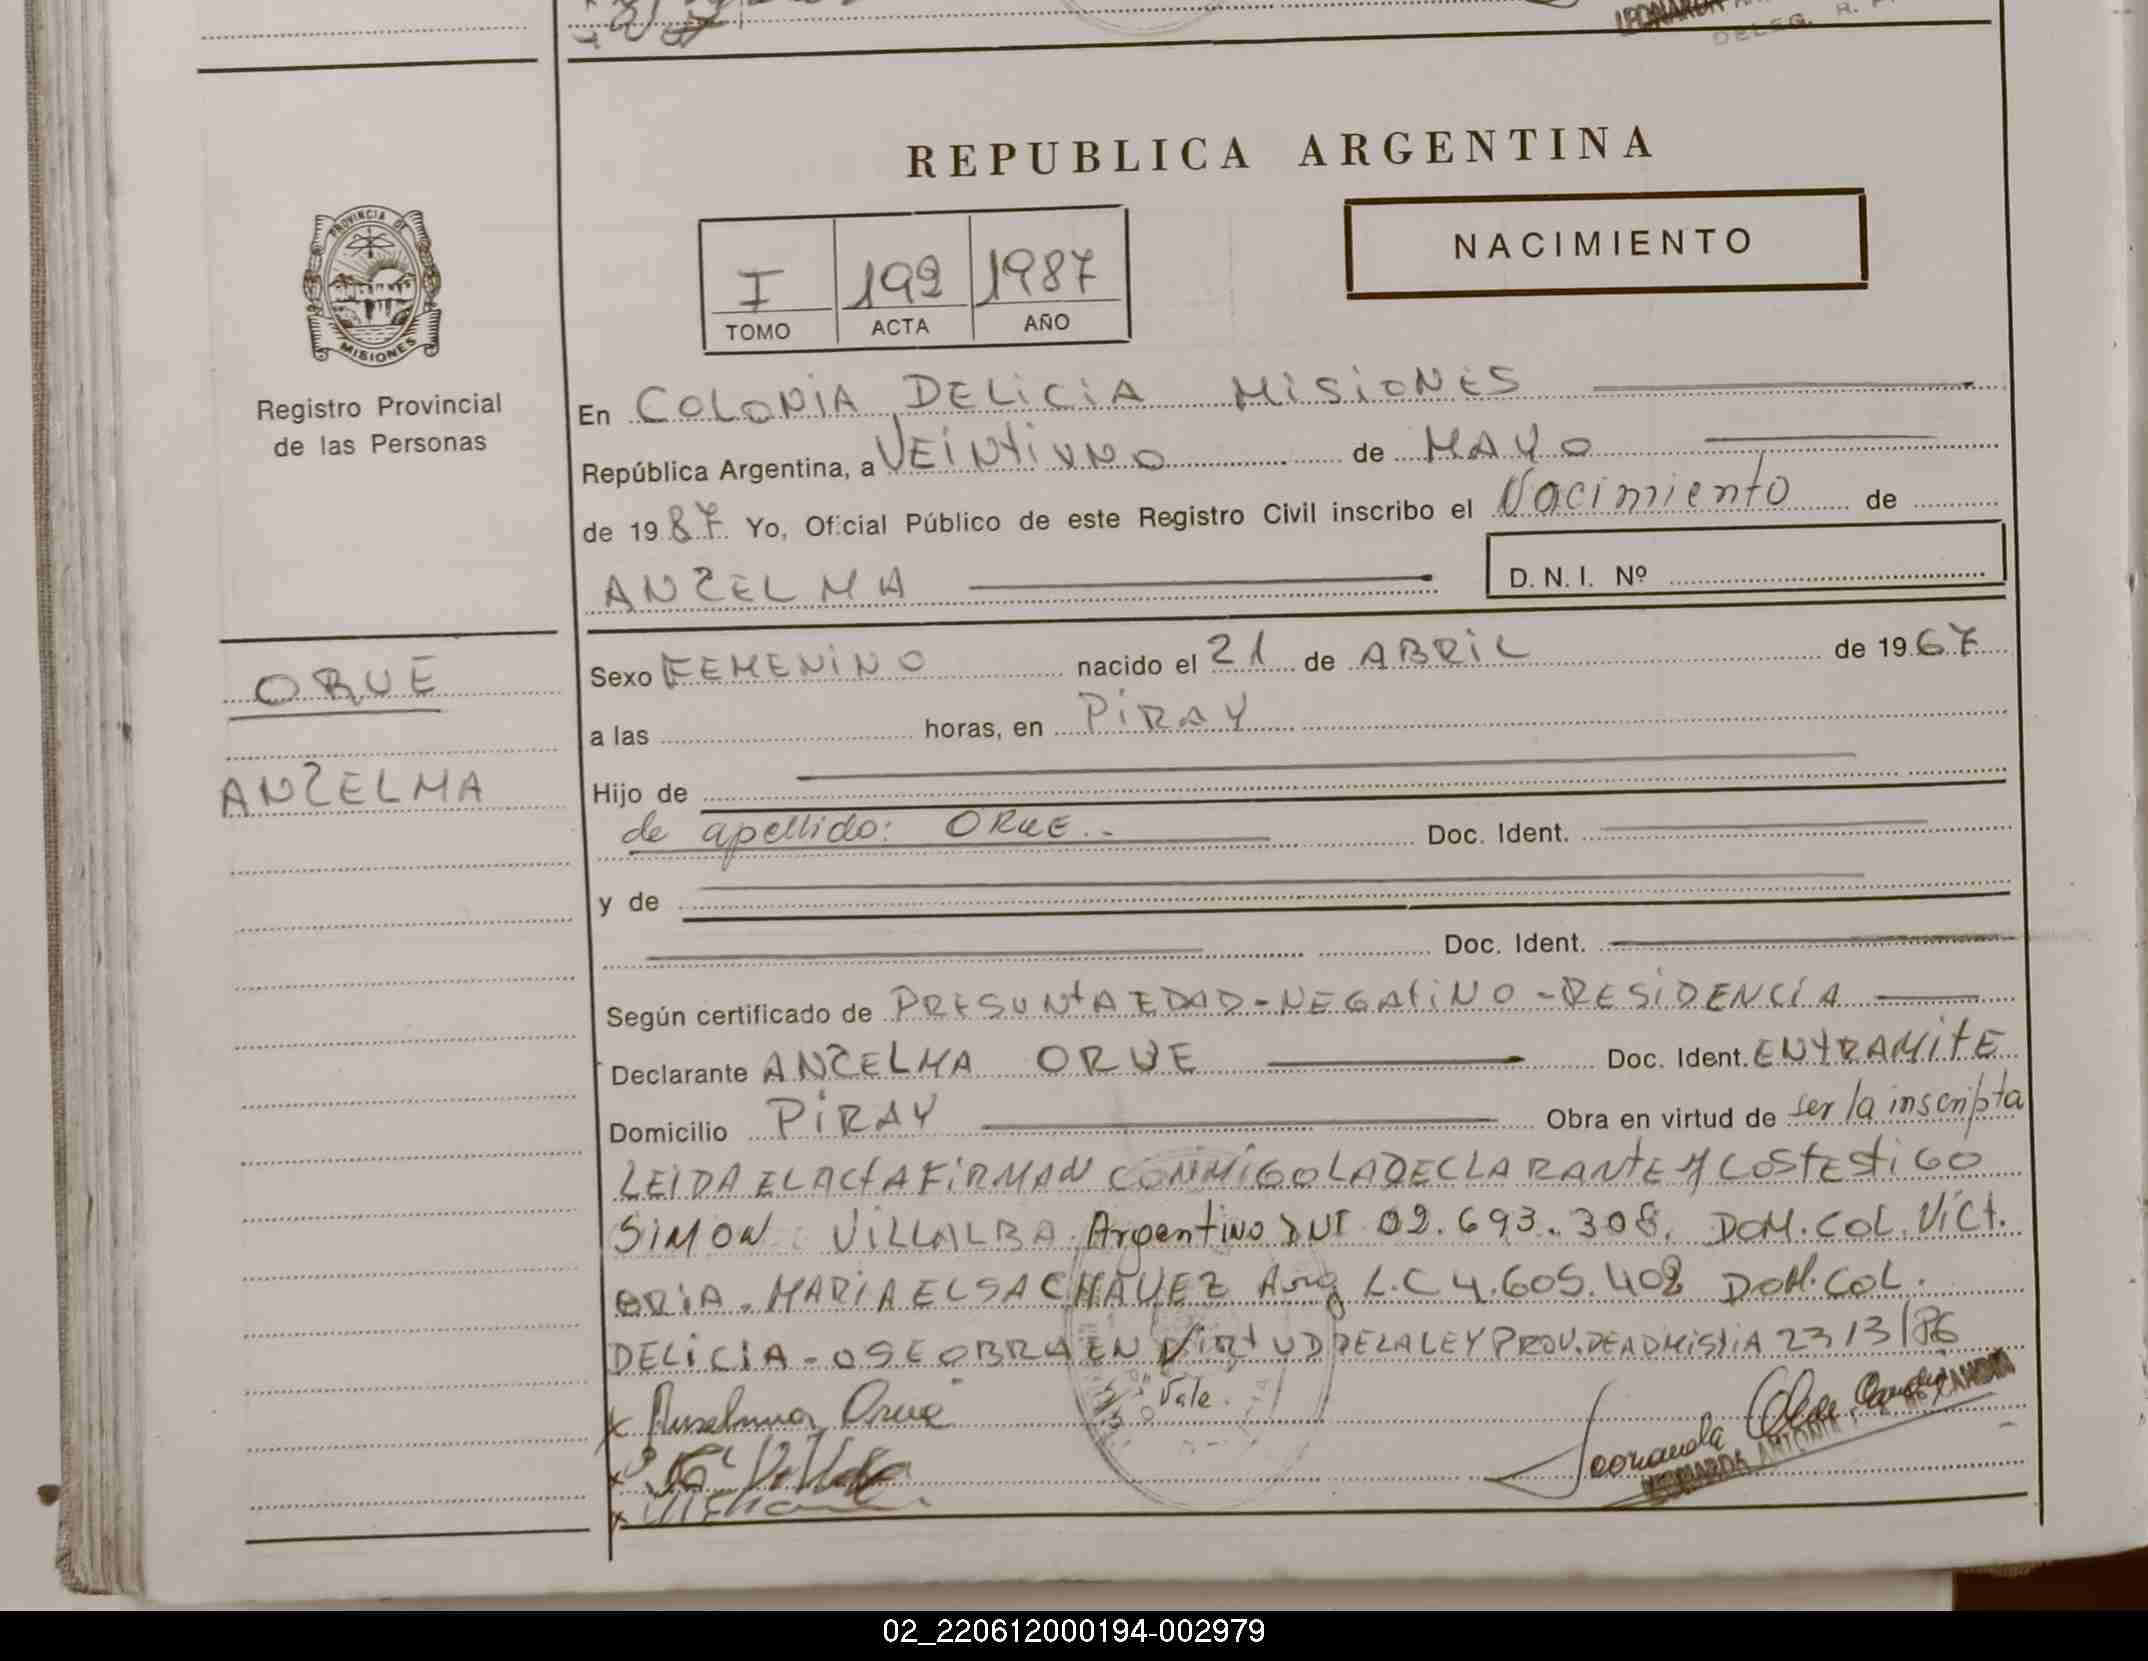 REPUBLICA ARGENTINA
I 192 1987
TOMO ACTA AÑO
NACIMIENTO
PROVINCIA DE
MISIONES
Registro Provincial
de las Personas
En COLONIA DELICIA MISIONES
República Argentina, a VEINTIUNO de MAYO
de 1987 Yo, Oficial Público de este Registro Civil inscribo el Nacimiento de
ANZELMA D.N.I. Nº
ORUE
ANZELMA
Sexo FEMENINO nacido el 21 de ABRIL de 1967
a las horas, en PIRAY
Hijo de
de apellido: ORUE.- Doc. Ident.
y de
Doc. Ident.
Según certificado de PRESUNTA EDAD-NEGATINO-RESIDENCIA
Declarante ANZELMA ORUE Doc. Ident. EN TRAMITE
Domicilio PIRAY Obra en virtud de ser la inscripta
LEIDA EL ACTA FIRMAN CONMIGO LA DECLARANTE Y LOS TESTIGO
SIMON VILLALBA Argentino DNI 02.693.308. DOM. COL. VICT.
ORIA. MARIA ELSA CHAVEZ Arg L.C 4.605.408 DOM. COL.
DELICIA - O SE OBRA EN VIRTUD DE LA LEY PROV. DE ADMISTIA 2313/86
Vale.
x Anselma Orué
Leonarda
02_220612000194-002979